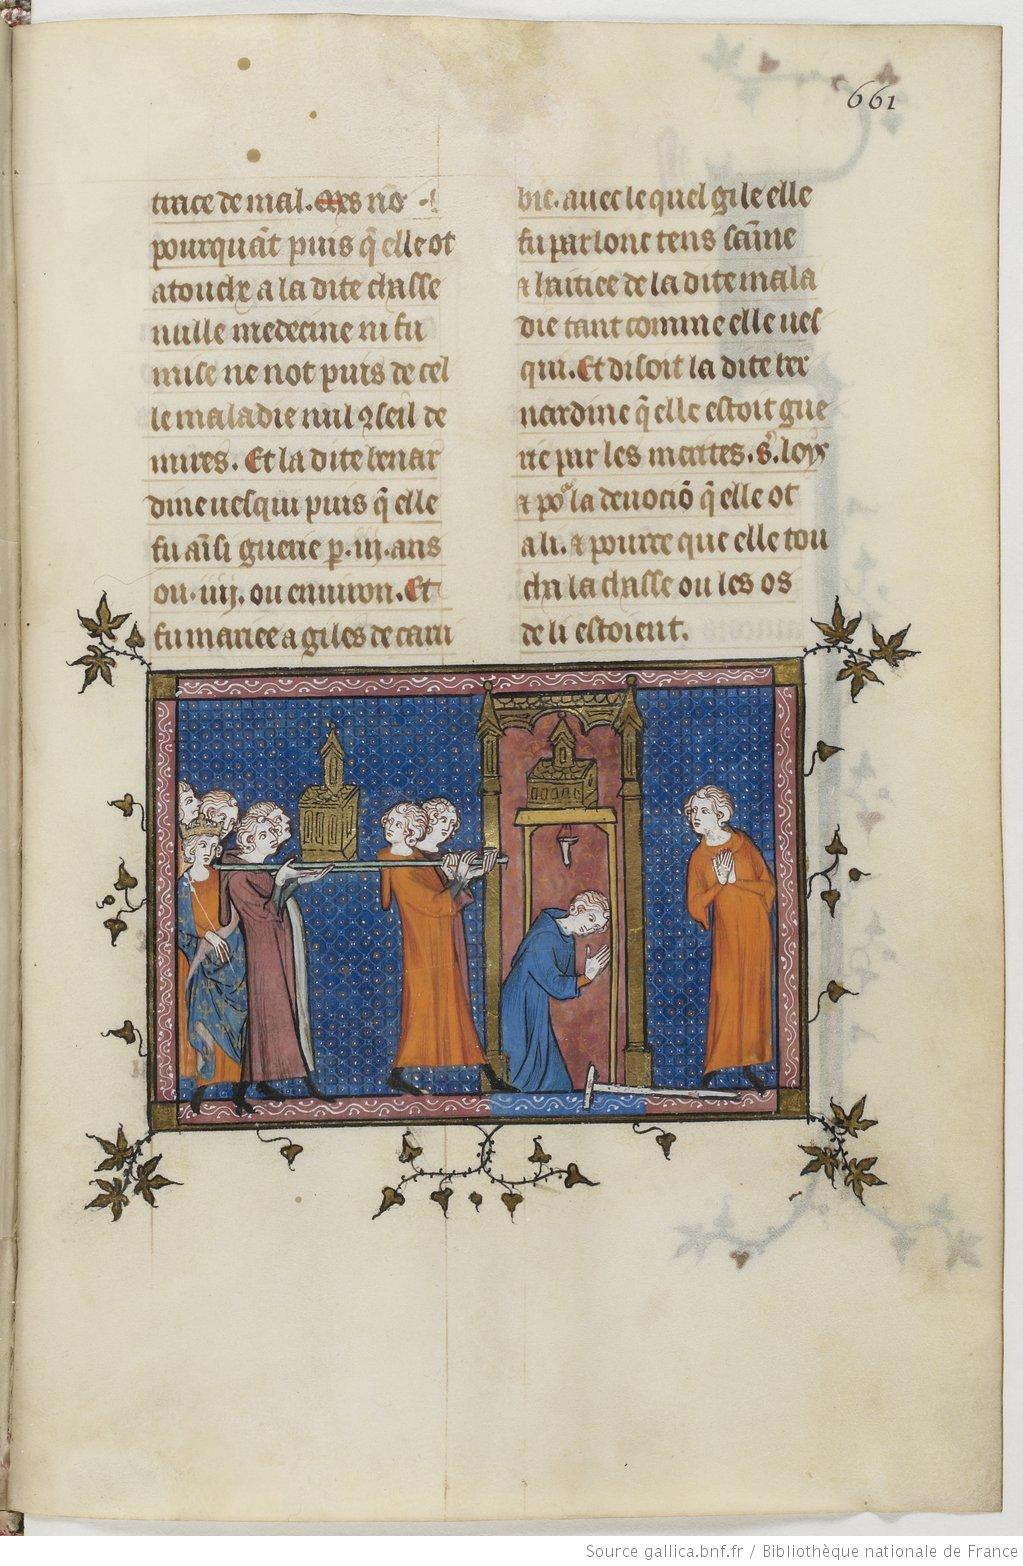 661
trace de mal. Mes nō
pourquāt puis q̄ elle ot
atouche a la dite chasse
nulle medecine ni fu
mise ne not puis de cel
le maladie nul ꝯseil de
mires. Et la dite bernar
dine uesqui puis q̄ elle
fu aīsi guerie p̲. iij. ans
ou. iiij. ou enuiron. Et
fu mariee a giles de cam
bie. auec le quel gile elle
fu par lonc tens saīne
⁊ haitiee de la dite mala
die tant comme elle ues
qui. Et disoit la dite ber
nardine q̄ elle estoit gue
rie par les merites. s̄. loys
⁊ poͬ la deuociō q̄ elle ot
a li. ⁊ pource que elle tou
cha la chasse ou les os
de li estoient.
Source gallica.bnf.fr / Bibliothèque nationale de France